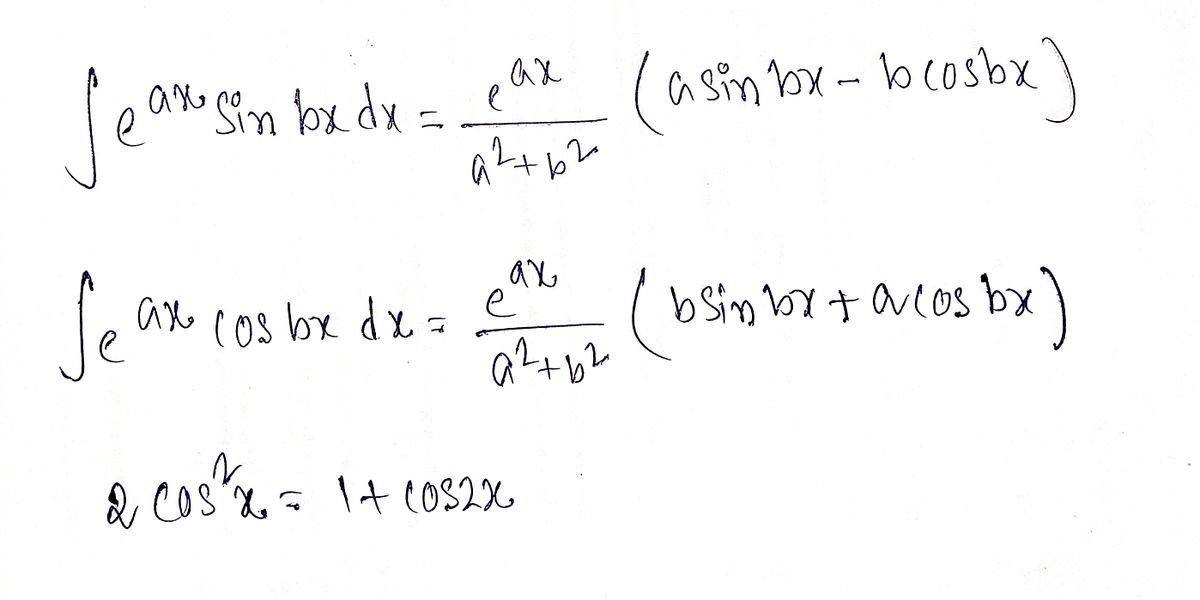 ∫e^{ax} sin bx dx = \frac{e^{ax}}{a²+b²} (a sin bx - b cos bx)
∫e^{ax} cos bx dx = \frac{e^{ax}}{a²+b²} (b sin bx + a cos bx)
2 cos²x = 1 + cos2x